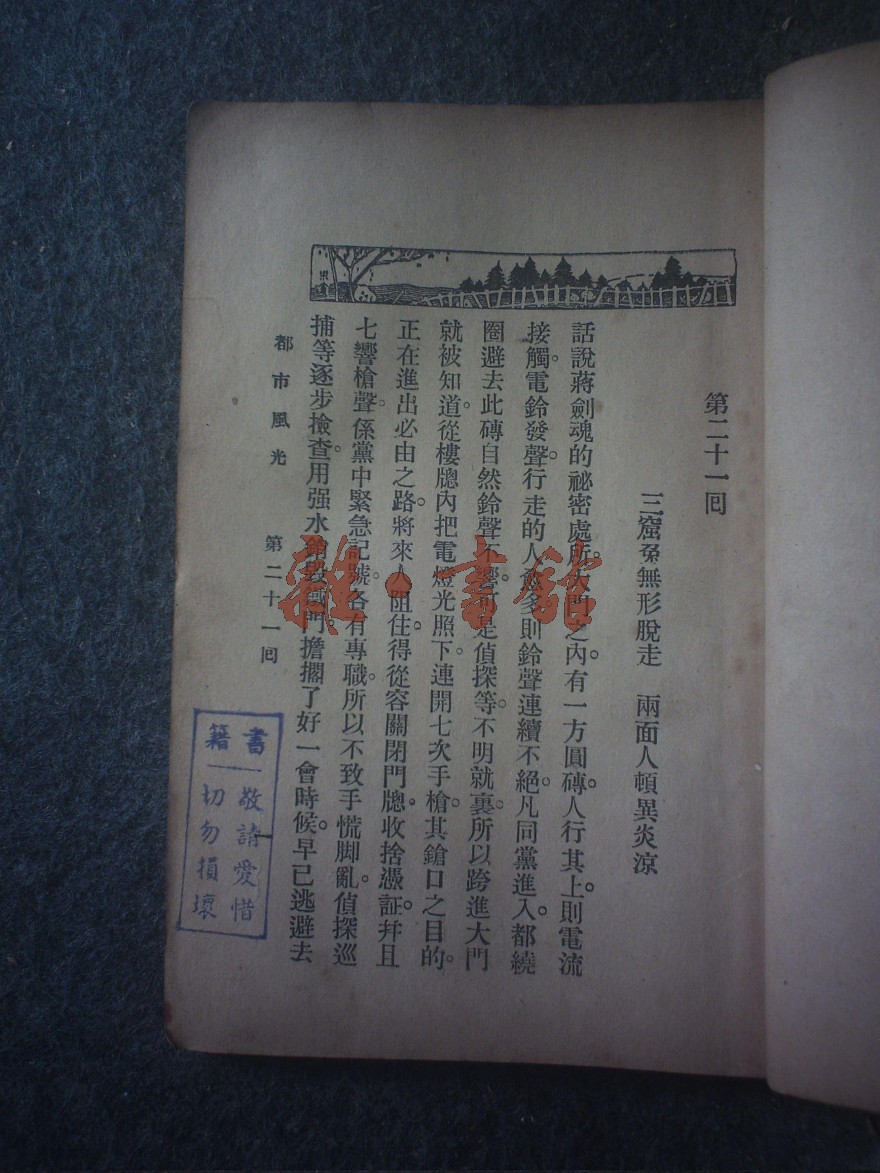 第二十一回
三窟兔無形脫走　兩面人頓異炎涼
話說蔣劍魂的祕密處所。大門之內。有一方圓磚。人行其上。則電流
接觸。電鈴發聲。行走的人愈多。則鈴聲連續不絕。凡同黨進入。都繞
圈避去此磚。自然鈴聲不響。可是偵探等。不明就裏。所以跨進大門
就被知道。從樓牕內把電燈光照下。連開七次手槍。其鎗口之目的。
正在進出必由之路。將來人阻住。得從容關閉門牕。收拾憑証。幷且
七響槍聲。係黨中緊急記號。各有專職。所以不致手慌脚亂。偵探巡
捕等逐步撿查。用强水銷毀鐵門。擔擱了好一會時候。早已逃避去
都市風光　第二十一回
書籍
敬請愛惜
一切勿損壞
雜·書館